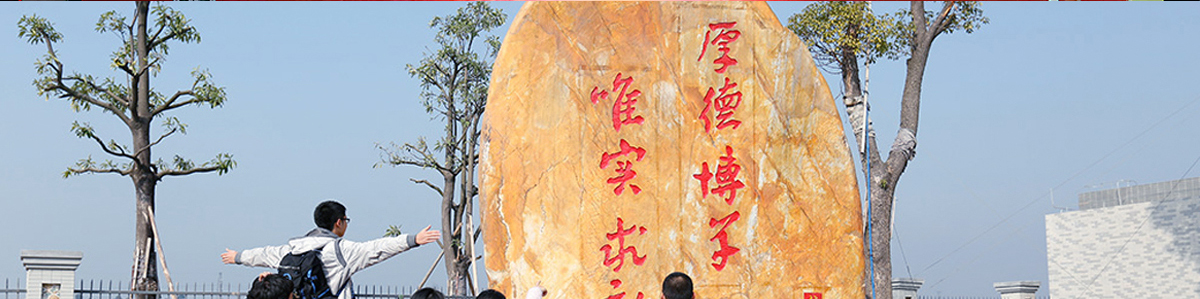 厚德博学
唯实求